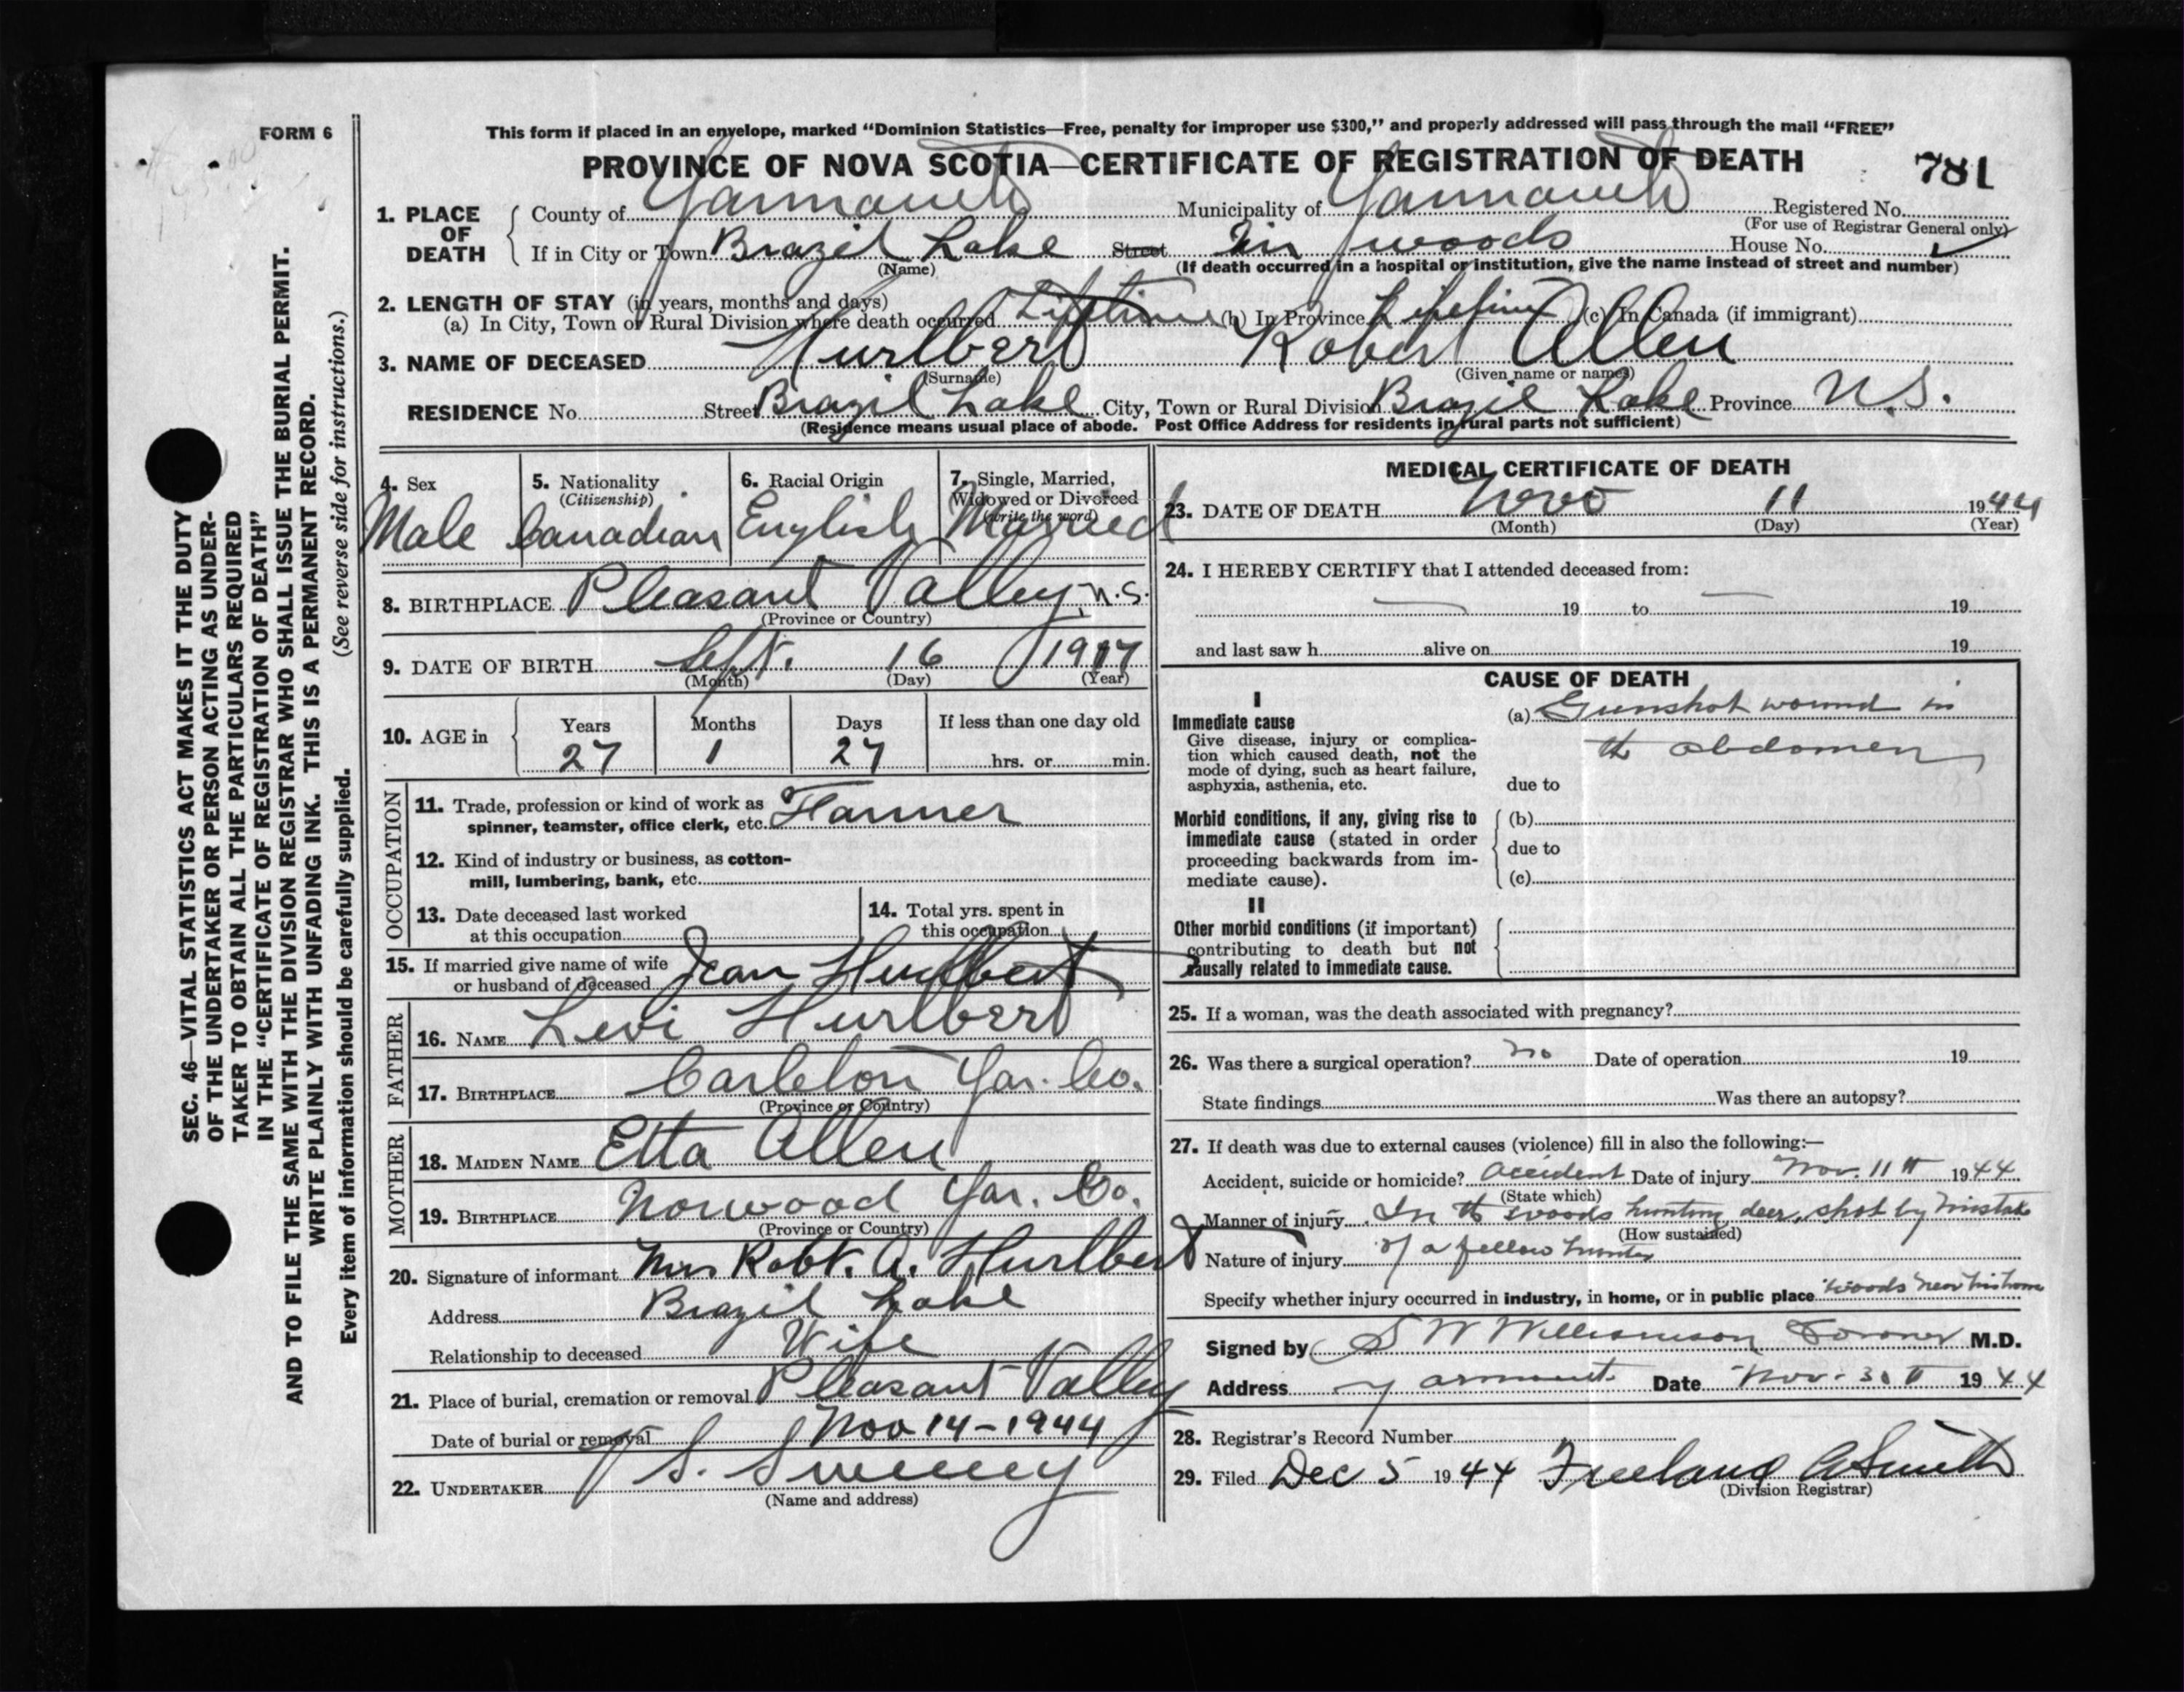 FORM 6
This form if placed in an envelope, marked “Dominion Statistics—Free, penalty for improper use $300,” and properly addressed will pass through the mail “FREE”
PROVINCE OF NOVA SCOTIA—CERTIFICATE OF REGISTRATION OF DEATH
781
1. PLACE OF DEATH
County of Yarmouth Municipality of Yarmouth Registered No.
(For use of Registrar General only)
If in City or Town Brazil Lake Street In woods House No.
(Name) (If death occurred in a hospital or institution, give the name instead of street and number)
2. LENGTH OF STAY (in years, months and days)
(a) In City, Town or Rural Division where death occurred Lifetime (b) In Province Lifetime (c) In Canada (if immigrant)
3. NAME OF DECEASED Hurlbert Robert Allen
(Surname) (Given name or names)
RESIDENCE No. Street Brazil Lake City, Town or Rural Division Brazil Lake Province N.S.
(Residence means usual place of abode. Post Office Address for residents in rural parts not sufficient)
4. Sex
Male
5. Nationality
(Citizenship)
Canadian
6. Racial Origin
English
7. Single, Married,
Widowed or Divorced
(write the word)
Married
8. BIRTHPLACE Pleasant Valley, N.S.
(Province or Country)
9. DATE OF BIRTH Sept. 16 1917
(Month) (Day) (Year)
10. AGE in
Years Months Days If less than one day old
27 1 27 hrs. or min.
OCCUPATION
11. Trade, profession or kind of work as
spinner, teamster, office clerk, etc. Farmer
12. Kind of industry or business, as cotton-
mill, lumbering, bank, etc.
13. Date deceased last worked
at this occupation
14. Total yrs. spent in
this occupation
15. If married give name of wife
or husband of deceased Jean Hurlbert
FATHER
16. NAME Levi Hurlbert
17. BIRTHPLACE Carleton Yar. Co.
(Province or Country)
MOTHER
18. MAIDEN NAME Etta Allen
19. BIRTHPLACE Norwood Yar. Co.
(Province or Country)
20. Signature of informant Mrs Robt. A. Hurlbert
Address Brazil Lake
Relationship to deceased Wife
21. Place of burial, cremation or removal Pleasant Valley
Date of burial or removal Nov 14-1944
22. UNDERTAKER V S. Sweeney
(Name and address)
MEDICAL CERTIFICATE OF DEATH
23. DATE OF DEATH Nov 11 1944
(Month) (Day) (Year)
24. I HEREBY CERTIFY that I attended deceased from:
— 19 to — 19
and last saw h alive on 19
CAUSE OF DEATH
I
Immediate cause
Give disease, injury or complica-
tion which caused death, not the
mode of dying, such as heart failure,
asphyxia, asthenia, etc.
(a) Gunshot wound in
the abdomen
due to
Morbid conditions, if any, giving rise to
immediate cause (stated in order
proceeding backwards from im-
mediate cause).
(b)
due to
(c)
II
Other morbid conditions (if important)
contributing to death but not
causally related to immediate cause.
25. If a woman, was the death associated with pregnancy?
26. Was there a surgical operation? no Date of operation 19
State findings Was there an autopsy?
27. If death was due to external causes (violence) fill in also the following:—
Accident, suicide or homicide? accident Date of injury Nov. 11th 1944
(State which)
Manner of injury In the woods hunting deer, shot by mistake
(How sustained)
Nature of injury of a fellow hunter
Specify whether injury occurred in industry, in home, or in public place woods near his home
Signed by S W Williamson Coroner M.D.
Address Yarmouth Date Nov. 30th 1944
28. Registrar's Record Number
29. Filed Dec 5 1944 Freeland A Smith
(Division Registrar)
SEC. 46—VITAL STATISTICS ACT MAKES IT THE DUTY
OF THE UNDERTAKER OR PERSON ACTING AS UNDER-
TAKER TO OBTAIN ALL THE PARTICULARS REQUIRED
IN THE “CERTIFICATE OF REGISTRATION OF DEATH”
AND TO FILE THE SAME WITH THE DIVISION REGISTRAR WHO SHALL ISSUE THE BURIAL PERMIT.
WRITE PLAINLY WITH UNFADING INK. THIS IS A PERMANENT RECORD.
Every item of information should be carefully supplied. (See reverse side for instructions.)